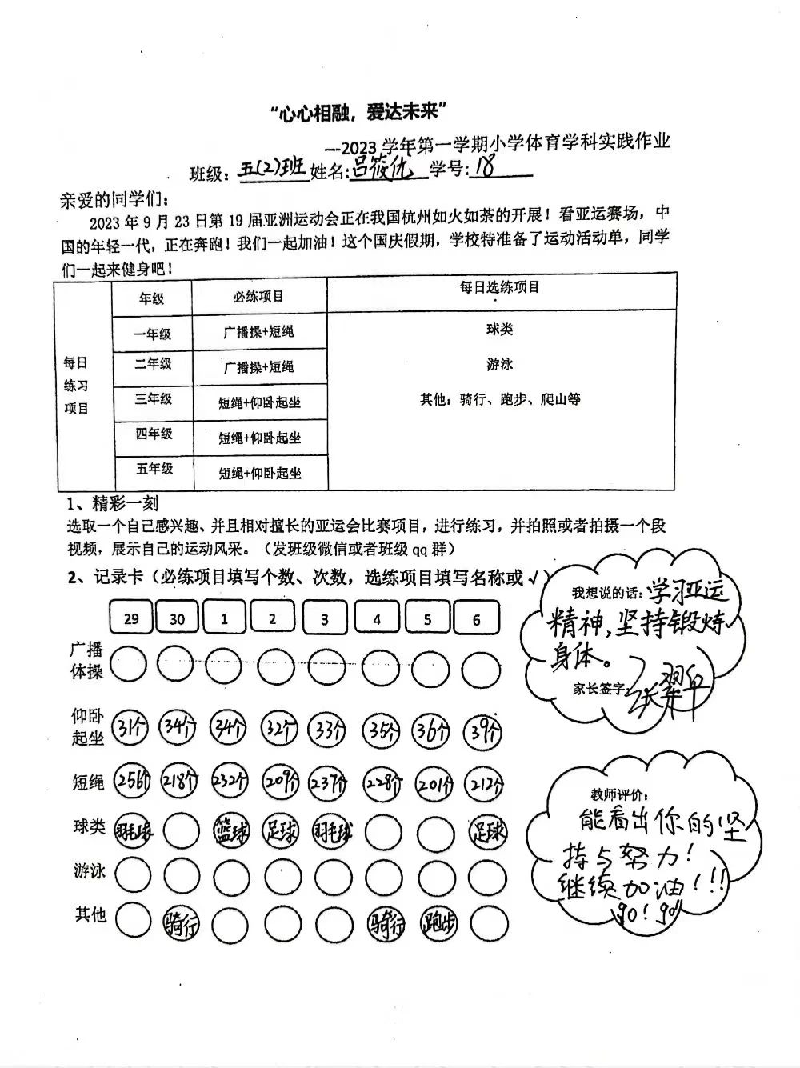 “心心相融，爱达未来”
—2023 学年第一学期小学体育学科实践作业
班级：五(2)班 姓名:吕筱优 学号:18
亲爱的同学们：
2023 年 9 月 23 日第 19 届亚洲运动会正在我国杭州如火如荼的开展！看亚运赛场，中
国的年轻一代，正在奔跑！我们一起加油！这个国庆假期，学校特准备了运动活动单，同学
们一起来健身吧！
年级 必练项目 每日选练项目
一年级 广播操+短绳 球类
每日练习项目 二年级 广播操+短绳 游泳
三年级 短绳+仰卧起坐 其他：骑行、跑步、爬山等
四年级 短绳+仰卧起坐
五年级 短绳+仰卧起坐
1、精彩一刻
选取一个自己感兴趣、并且相对擅长的亚运会比赛项目，进行练习，并拍照或者拍摄一个段
视频，展示自己的运动风采。（发班级微信或者班级 qq 群）
2、记录卡（必练项目填写个数、次数，选练项目填写名称或√）
29 30 1 2 3 4 5 6
广播体操
仰卧起坐 31个 34个 34个 32个 33个 35个 36个 39个
短绳 256个 218个 232个 209个 237个 228个 201个 212个
球类 羽毛球 篮球 足球 羽毛球 足球
游泳
其他 骑行 骑行 跑步
我想说的话：学习亚运
精神，坚持锻炼
身体。
家长签字：
教师评价：
能看出你的坚
持与努力！
继续加油！！！
go！go！